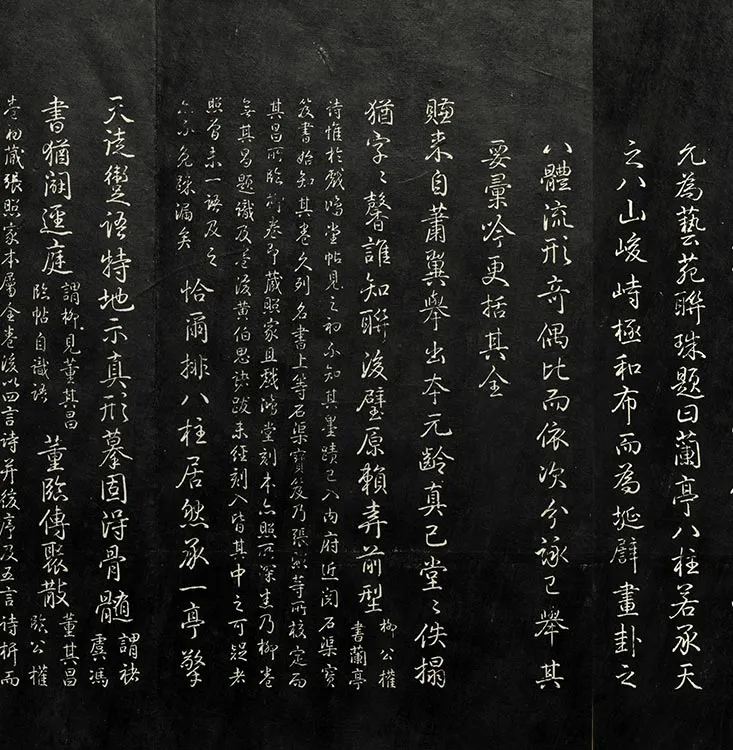 允為藝苑聯珠題曰蘭亭八柱若承天
之八山峻峙極和布而為埏辟畫卦之
八體流形奇偶比而依次分詠已舉其
要彙吟更括其全
賺来自蕭翼舉出本元齡真已堂〻佚搨
猶字〻馨誰知聯後璧原賴弆前型
柳公權
書蘭亭
詩惟於戲鴻堂帖見之初不知其墨蹟已入內府近閱石渠寶
笈書始知其卷久列名書上等石渠寶笈乃張照等所校定而
其昌所臨柳卷即藏照家且戲鴻堂刻本亦照所深悉乃柳卷
無其昌題識及卷後黃伯思諸跋未經刻入皆其中之可疑者
照曾未一語及之
亦不免疎漏矣
恰爾排八柱居然承一亭擎
天徒儗語特地示真形摹固得骨髓
謂褚
虞馮
書猶闢逕庭
謂柳見董其昌
臨帖自識語
董臨傳聚散
董其昌
臨公權
卷初藏張照家本屬全卷後以四言詩并後序及五言詩析而